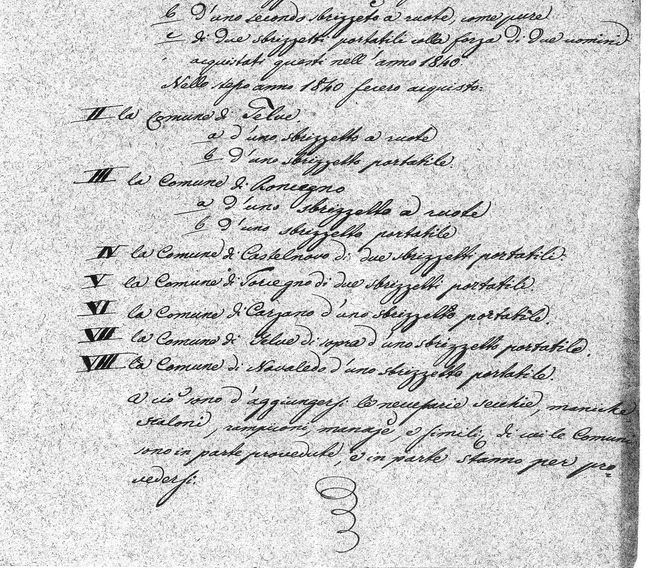 b d'uno secondo sbrizzeto a ruote, come pure
c di due sbrizzetti portatili colla forza di due uomini
acquistati questi nell'anno 1840
Nello stesso anno 1840 fecero acquisto:
II la Comune di Telve.
a d'uno sbrizzetto a ruote
b d'uno sbrizzetto portatile.
III la Comune di Roncegno
a d'uno sbrizzetto a ruote
b d'uno sbrizzetto portatile
IV la Comune di Castelnovo di due sbrizzetti portatili.
V la Comune di Torcegno di due sbrizzetti portatili.
VI la Comune di Carzano d'uno sbrizzetto portatile.
VII la Comune di Telve di sopra d'uno sbrizzetto portatile.
VIII la Comune di Novaledo d'uno sbrizzetto portatile.
a ciò sono d'aggiungersi le necessarie secchie, maniche
scaloni, rampconi, manaje, e simili, di cui le Comuni
sono in parte provedute, e in parte stanno per pro=
vedersi.